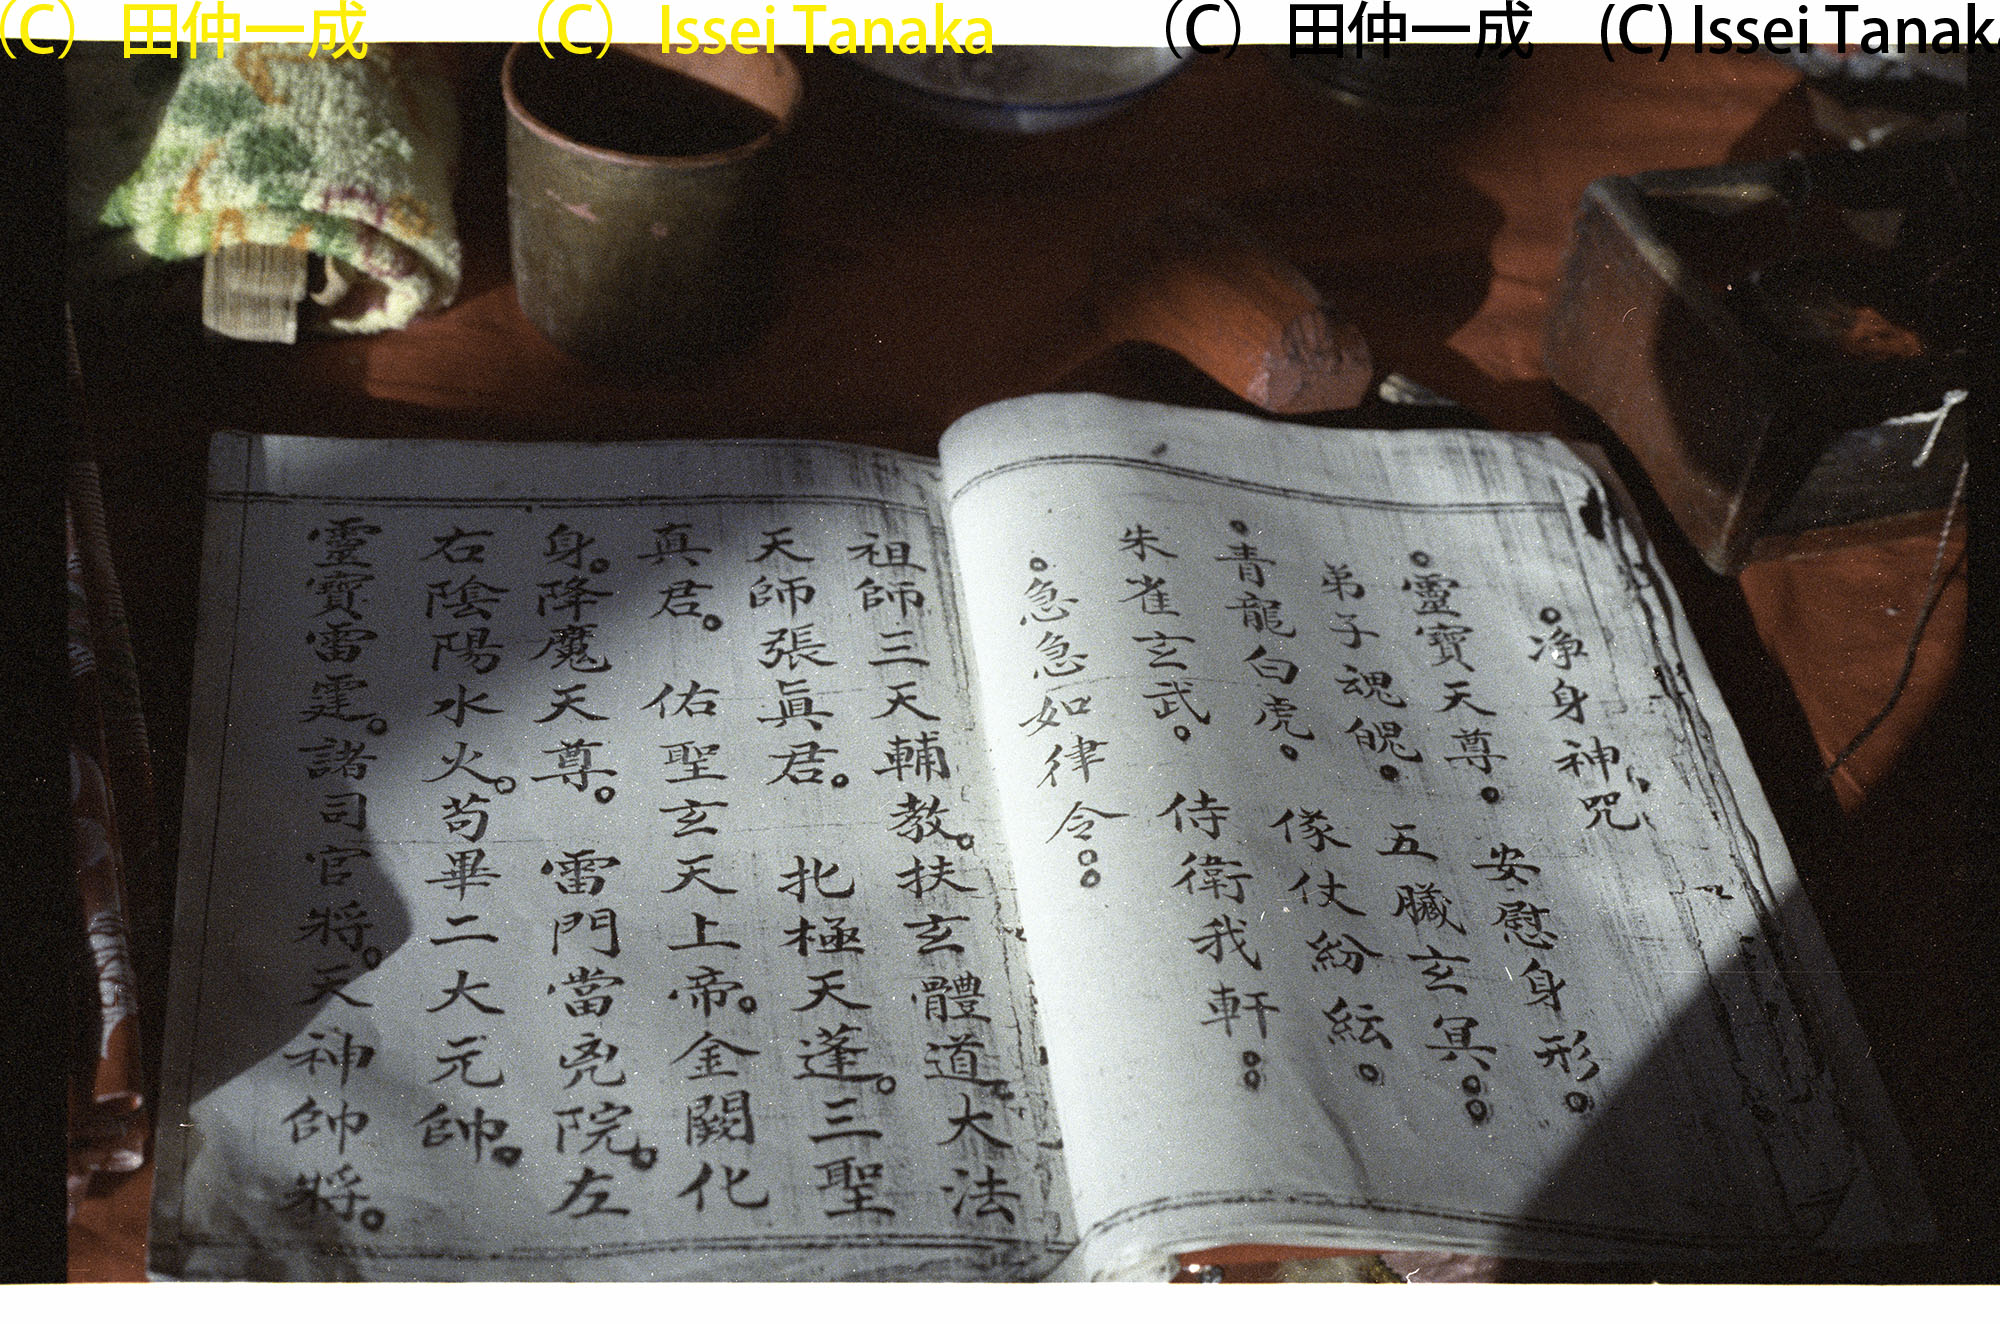 (C) 田仲一成
(C) Issei Tanaka
(C) 田仲一成
(C) Issei Tanaka
。净身神咒
安慰身形。
。靈寶天尊。
五臟玄冥。。
弟子魂魄。
像仗紛紜。
。青龍白虎。
侍衛我軒。。
朱雀玄武。
。急急如律令。。
祖師三天輔教。扶玄體道。大法
天師張眞君。 北極天蓬。三聖
真君。 佑聖玄天上帝。金闕化
身。降魔天尊。 雷門當兇院。左
右陰陽水火。苟畢二大元帥。
靈寶雷霆。諸司官將。天神帥將。